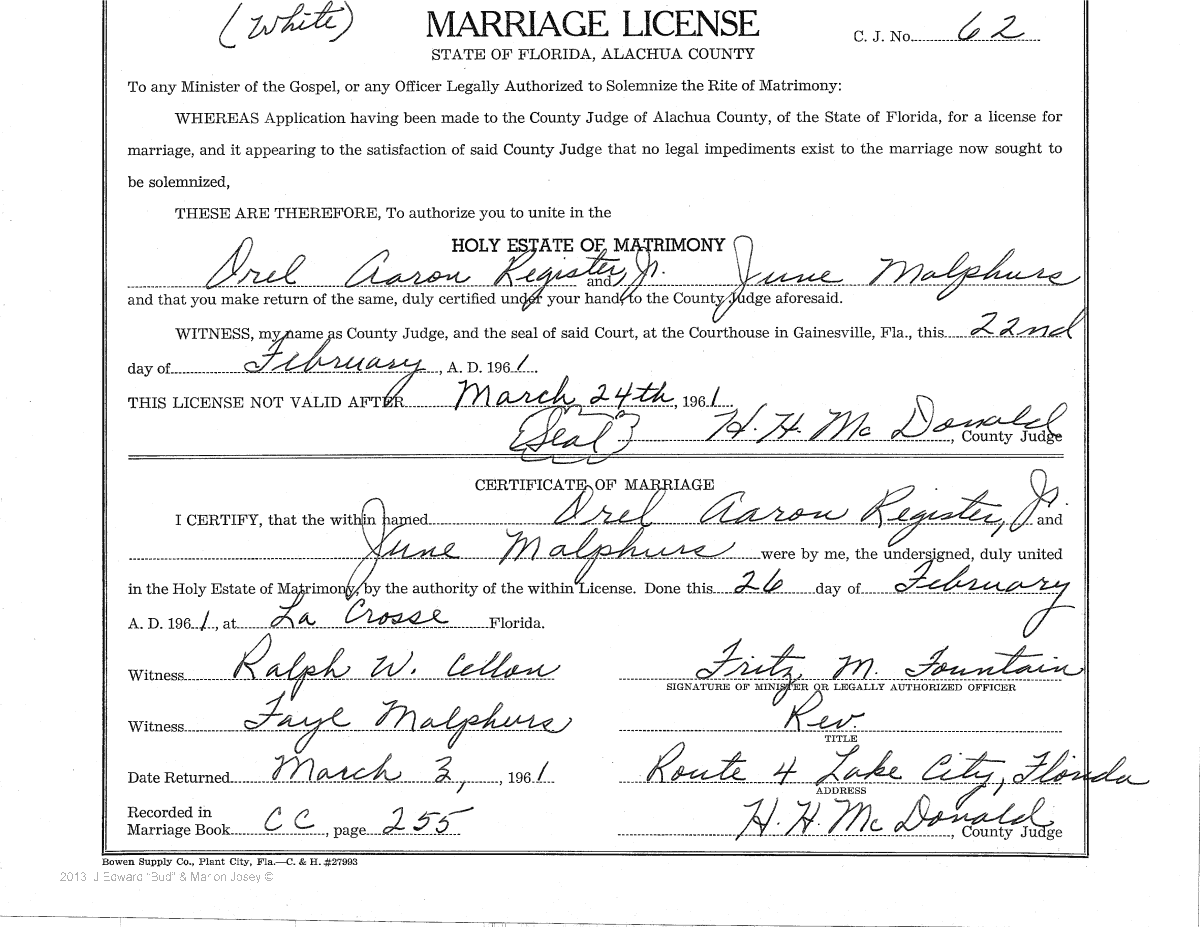 (White)
MARRIAGE LICENSE
C. J. No. 62
STATE OF FLORIDA, ALACHUA COUNTY
To any Minister of the Gospel, or any Officer Legally Authorized to Solemnize the Rite of Matrimony:
WHEREAS Application having been made to the County Judge of Alachua County, of the State of Florida, for a license for
marriage, and it appearing to the satisfaction of said County Judge that no legal impediments exist to the marriage now sought to
be solemnized,
THESE ARE THEREFORE, To authorize you to unite in the
HOLY ESTATE OF MATRIMONY
Orel Aaron Register, Jr. and June Malphurs
and that you make return of the same, duly certified under your hand, to the County Judge aforesaid.
WITNESS, my name as County Judge, and the seal of said Court, at the Courthouse in Gainesville, Fla., this 22nd
day of February, A. D. 1961.
THIS LICENSE NOT VALID AFTER March 24th, 1961.
(Seal) H. H. McDonald, County Judge
CERTIFICATE OF MARRIAGE
I CERTIFY, that the within named Orel Aaron Register, Jr. and
June Malphurs were by me, the undersigned, duly united
in the Holy Estate of Matrimony, by the authority of the within License. Done this 26 day of February
A. D. 1961, at La Crosse Florida.
Witness Ralph W. Cellon
Fritz M. Fountain
SIGNATURE OF MINISTER OR LEGALLY AUTHORIZED OFFICER
Witness Faye Malphurs
Rev.
TITLE
Date Returned March 3, 1961
Route 4 Lake City, Florida
ADDRESS
Recorded in
Marriage Book CC, page 255
H. H. McDonald, County Judge
Bowen Supply Co., Plant City, Fla.—C. & H. #27993
2013 J Edward "Bud" & Marion Josey ©